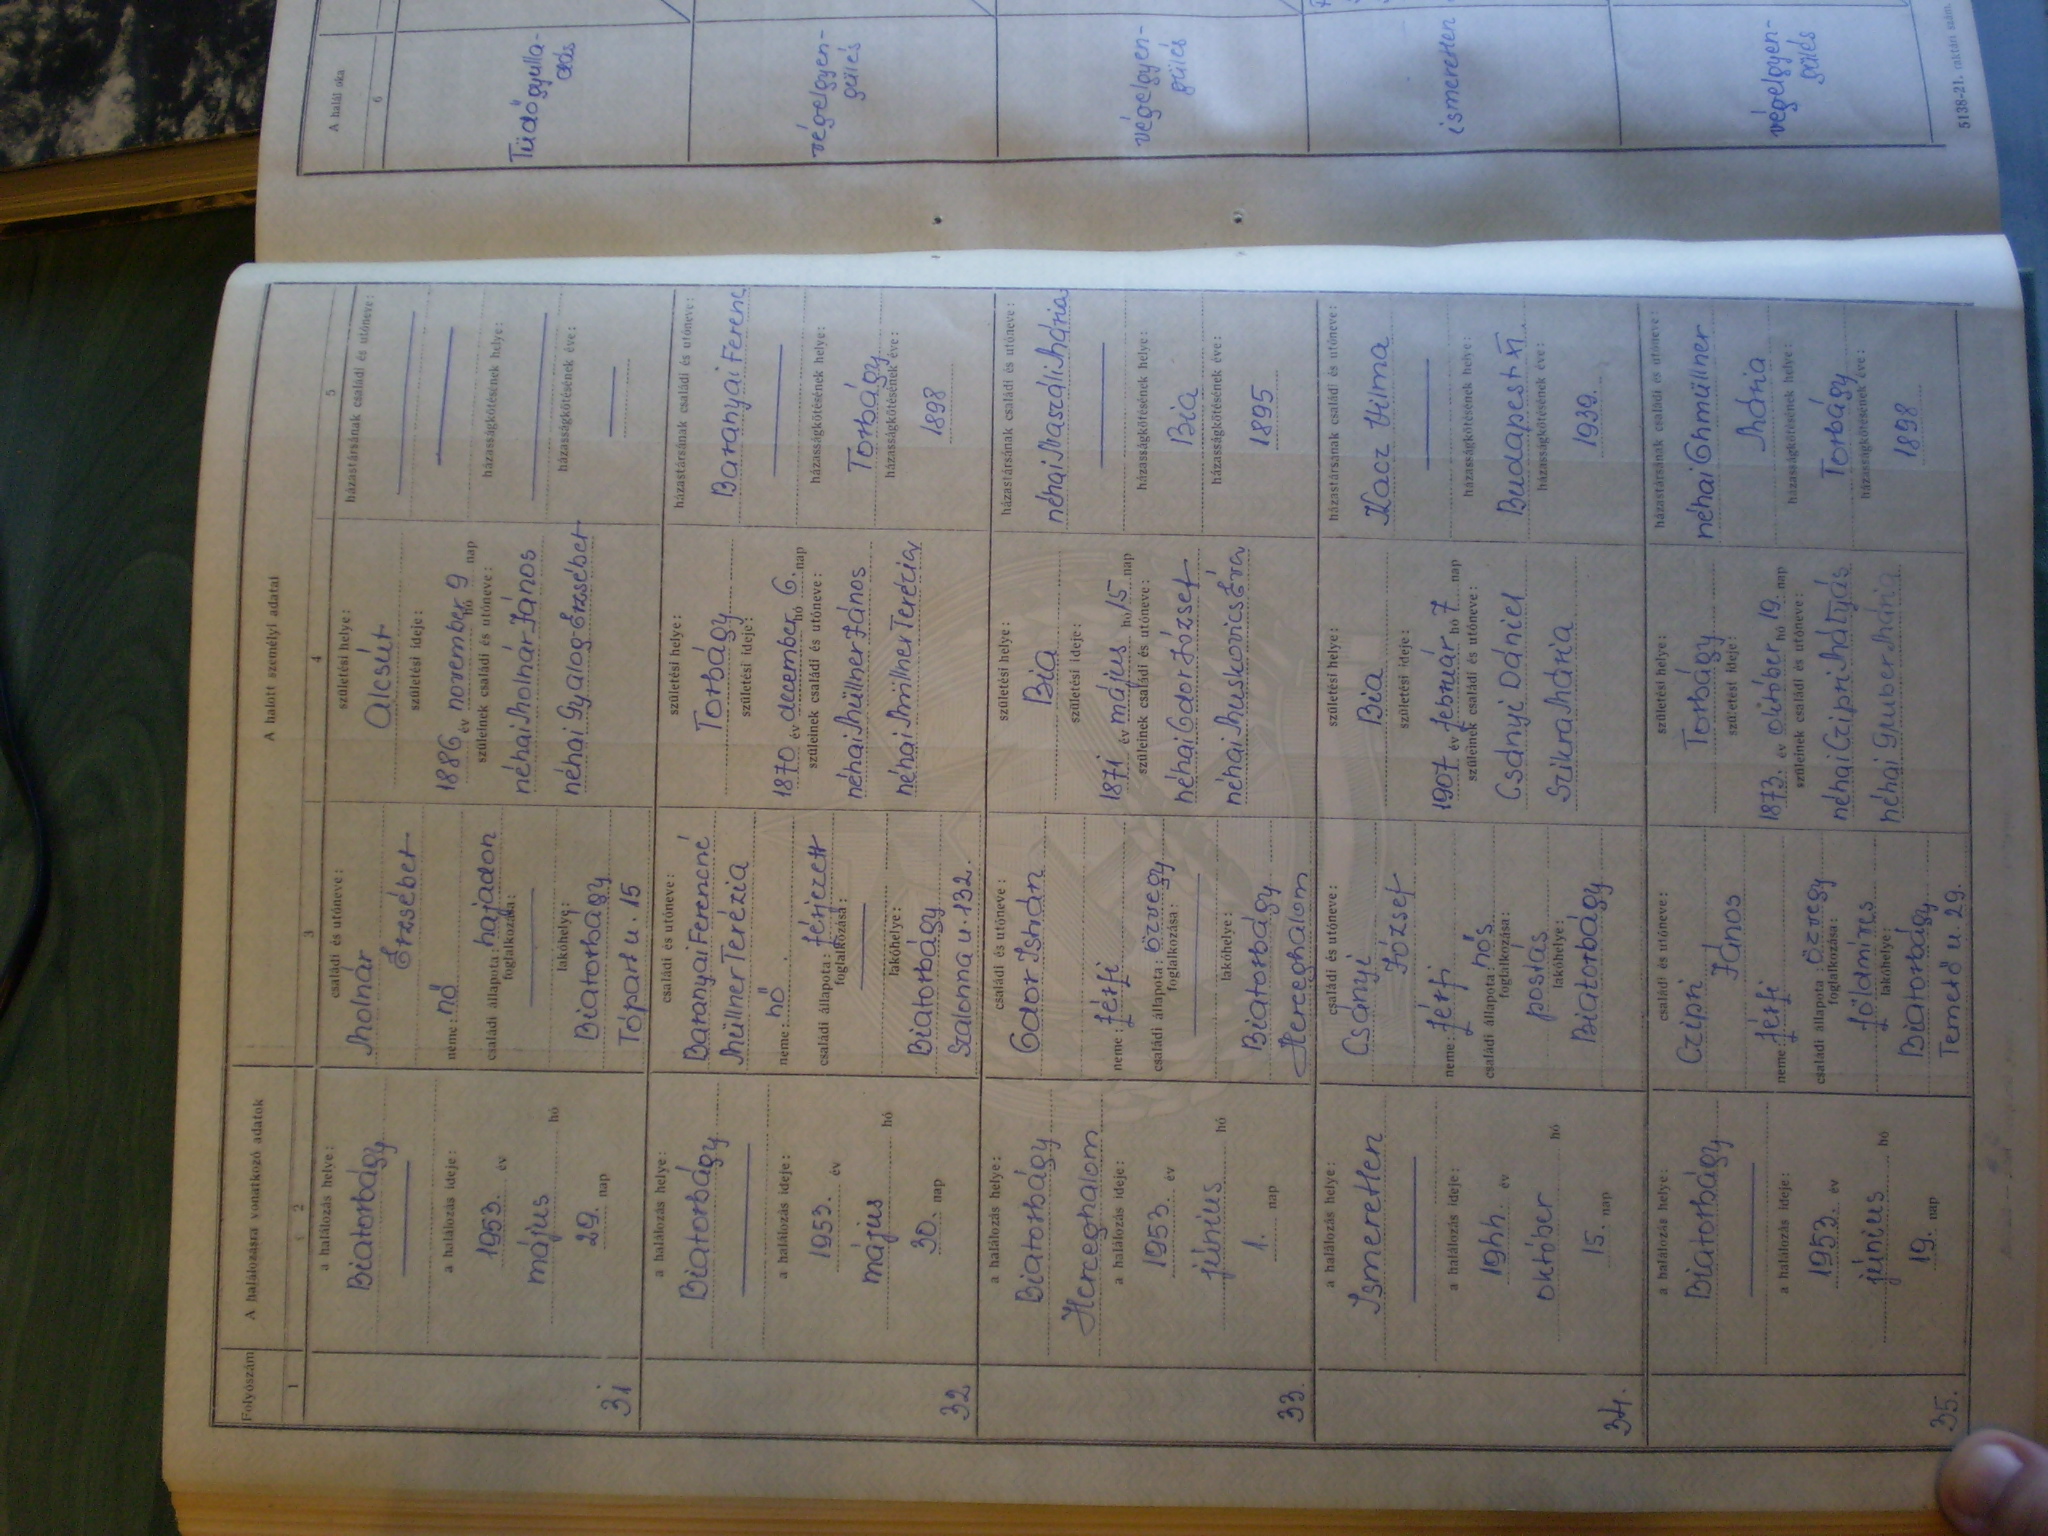 Folyószám
A halálozásra vonatkozó adatok
A halott személyi adatai
A halál oka
1
2
3
4
5
6
31
a halálozás helye:
Biatorbágy
a halálozás ideje:
1953. év
május hó
29. nap
családi és utóneve:
Molnár
Erzsébet
neme: nő
családi állapota: hajadon
foglalkozása:
lakóhelye:
Biatorbágy
Tópart u. 15
születési helye:
Alcsút
születési ideje:
1886 év november hó 9 nap
szüleinek családi és utóneve:
néhai Molnár János
néhai Gyalog Erzsébet
házastársának családi és utóneve:
házasságkötésének helye:
házasságkötésének éve:
Tüdőgyulla-
dás
32
a halálozás helye:
Biatorbágy
a halálozás ideje:
1953. év
május hó
30. nap
családi és utóneve:
Baranyai Ferencné
Müllner Terézia
neme: nő
családi állapota: férjezett
foglalkozása:
lakóhelye:
Biatorbágy
Szalonna u. 132.
születési helye:
Torbágy
születési ideje:
1870 év december hó 6. nap
szüleinek családi és utóneve:
néhai Müllner János
néhai Müllner Terézia
házastársának családi és utóneve:
Baranyai Ferenc
házasságkötésének helye:
Torbágy
házasságkötésének éve:
1898
végelgyen-
gülés
33.
a halálozás helye:
Biatorbágy
Herceghalom
a halálozás ideje:
1953 év
június hó
1. nap
családi és utóneve:
Odor István
neme: férfi
családi állapota: özvegy
foglalkozása:
lakóhelye:
Biatorbágy
Herceghalom
születési helye:
Bia
születési ideje:
1871 év május hó 15 nap
szüleinek családi és utóneve:
néhai Odor József
néhai Muskovics Éva
házastársának családi és utóneve:
néhai Vaszáli Mária
házasságkötésének helye:
Bia
házasságkötésének éve:
1895
végelgyen-
gülés
34.
a halálozás helye:
Ismeretlen
a halálozás ideje:
1944. év
október hó
15. nap
családi és utóneve:
Csányi
József
neme: férfi
családi állapota: nős
foglalkozása:
postás
lakóhelye:
Biatorbágy
születési helye:
Bia
születési ideje:
1907 év február hó 7 nap
szüleinek családi és utóneve:
Csányi Dániel
Szikra Mária
házastársának családi és utóneve:
Kacz Vilma
házasságkötésének helye:
Budapest XI.
házasságkötésének éve:
1939.
ismeretlen
35.
a halálozás helye:
Biatorbágy
a halálozás ideje:
1953. év
június hó
19. nap
családi és utóneve:
Czipri
János
neme: férfi
családi állapota: özvegy
foglalkozása:
földműves
lakóhelye:
Biatorbágy
Temető u. 29.
születési helye:
Torbágy
születési ideje:
1873. év október hó 19. nap
szüleinek családi és utóneve:
néhai Czipri Mátyás
néhai Gruber Mária
házastársának családi és utóneve:
néhai Chmüllner
Mária
házasságkötésének helye:
Torbágy
házasságkötésének éve:
1898
végelgyen-
gülés
5138-21. raktári szám.